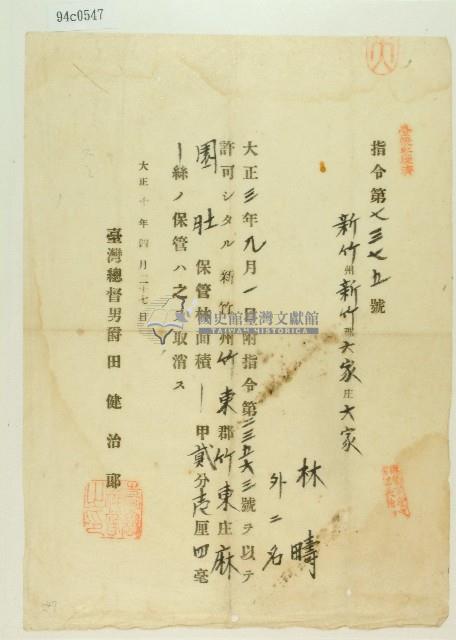 94c0547
指令第七三七五號
新竹州新竹郡六家庄六家
林疇
外二名
大正三年九月一日附指令第二三五六三號ヲ以テ
許可シタル新竹州竹東郡竹東庄麻
園肚保管林面積—甲貳分壱厘四毫
—絲ノ保管ハ之ヲ取消ス
大正十年四月二十七日
臺灣總督男爵田健治郎
國史館臺灣文獻館
TAIWAN HISTORICA